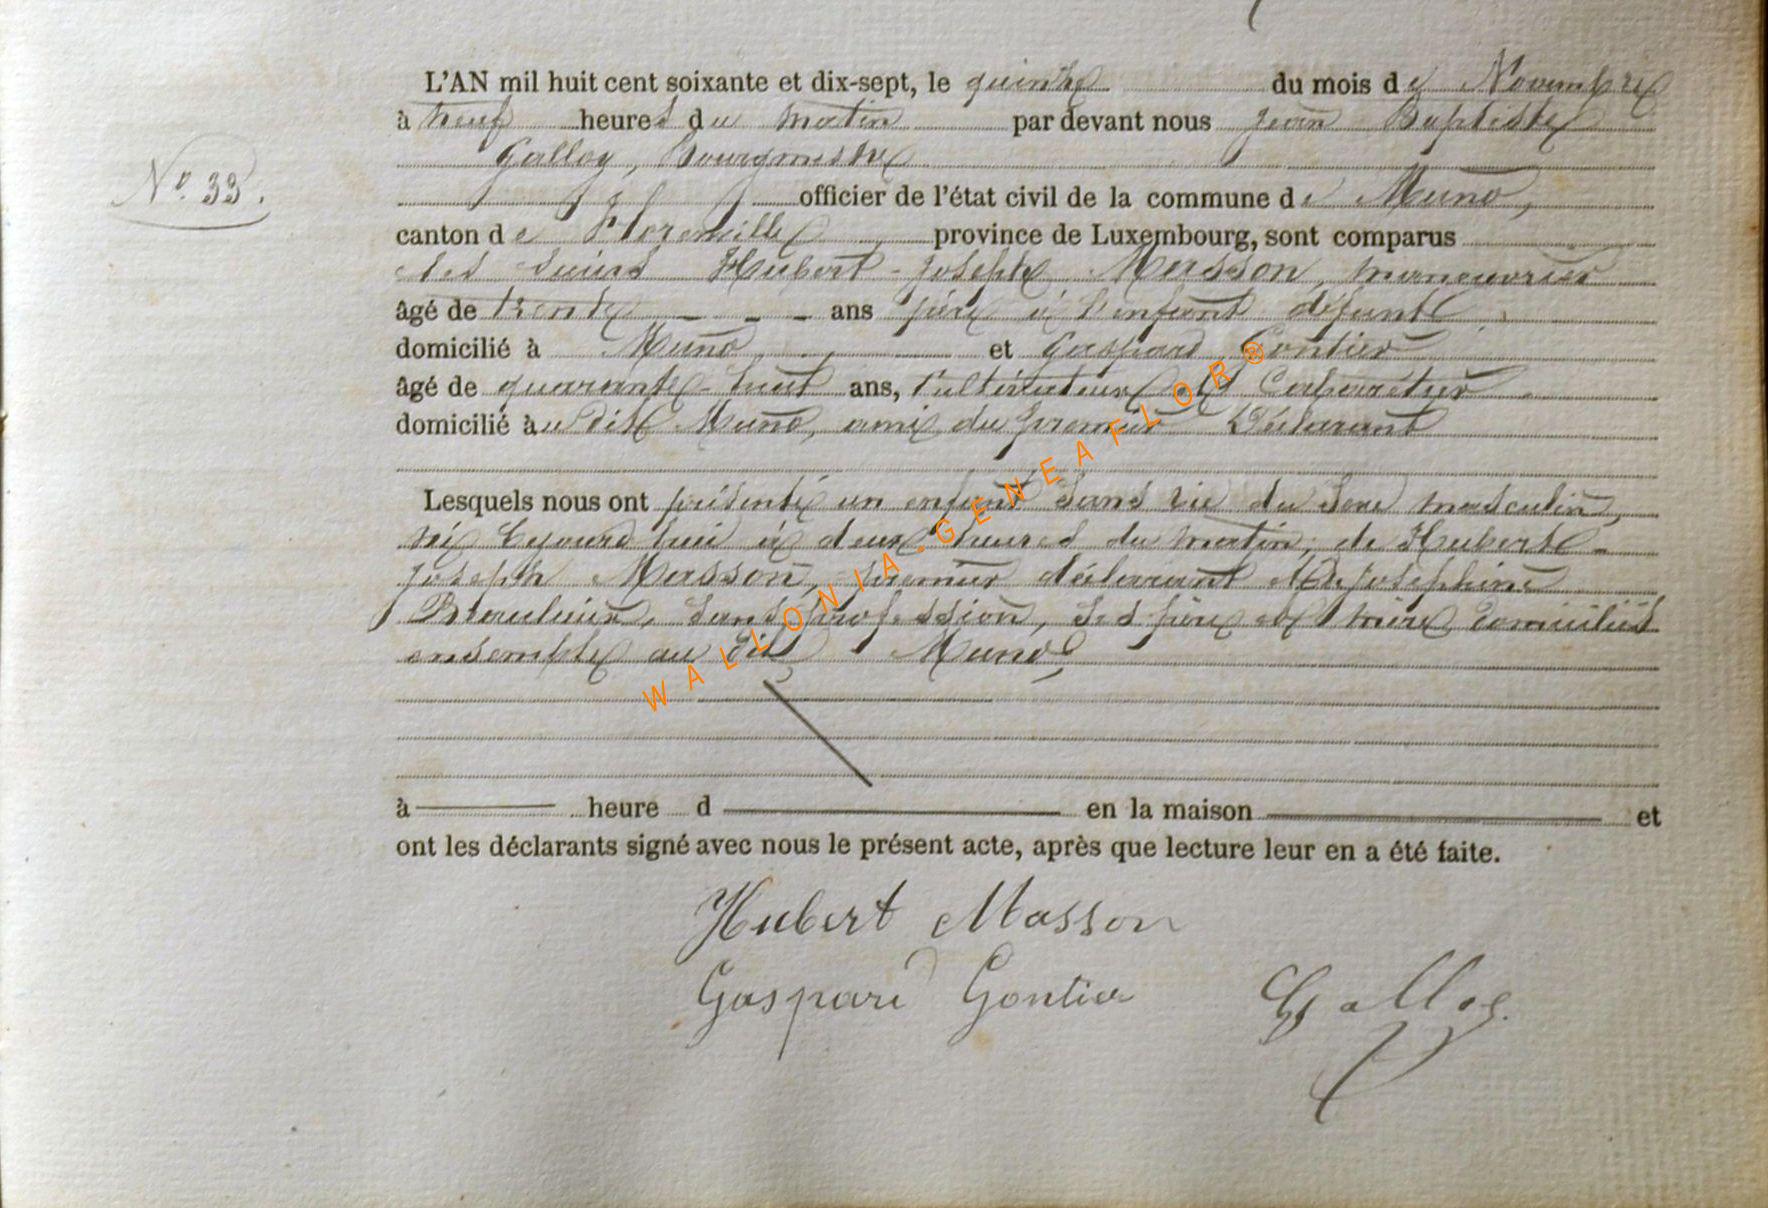 L'AN mil huit cent soixante et dix-sept, le quinze du mois de Novembre
à neuf heures du matin par devant nous Jean Baptiste
Galloy, Bourgmestre
N° 33.
officier de l'état civil de la commune de Muno,
canton de Florenville, province de Luxembourg, sont comparus
les sieurs Hubert-Joseph Masson, manouvrier
âgé de trente ans père à l'enfant défunt
domicilié à Muno, et Gaspard Gontier
âgé de quarante-huit ans, Cultivateur et Cabaretier
domicilié au dit Muno, ami du premier Déclarant
Lesquels nous ont présenté un enfant sans vie du sexe masculin,
né cejourd'hui à deux heures du matin, de Hubert-
Joseph Masson, premier déclarant et de Josephine
sans profession, ses père et mère domiciliés
ensemble au dit Muno,
à heure d en la maison et
ont les déclarants signé avec nous le présent acte, après que lecture leur en a été faite.
Hubert Masson
Gaspard Gontier Galloy
WALLONIA.GENEAFLOR®